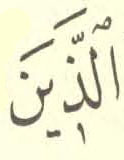 ٱلَّذٖينَ